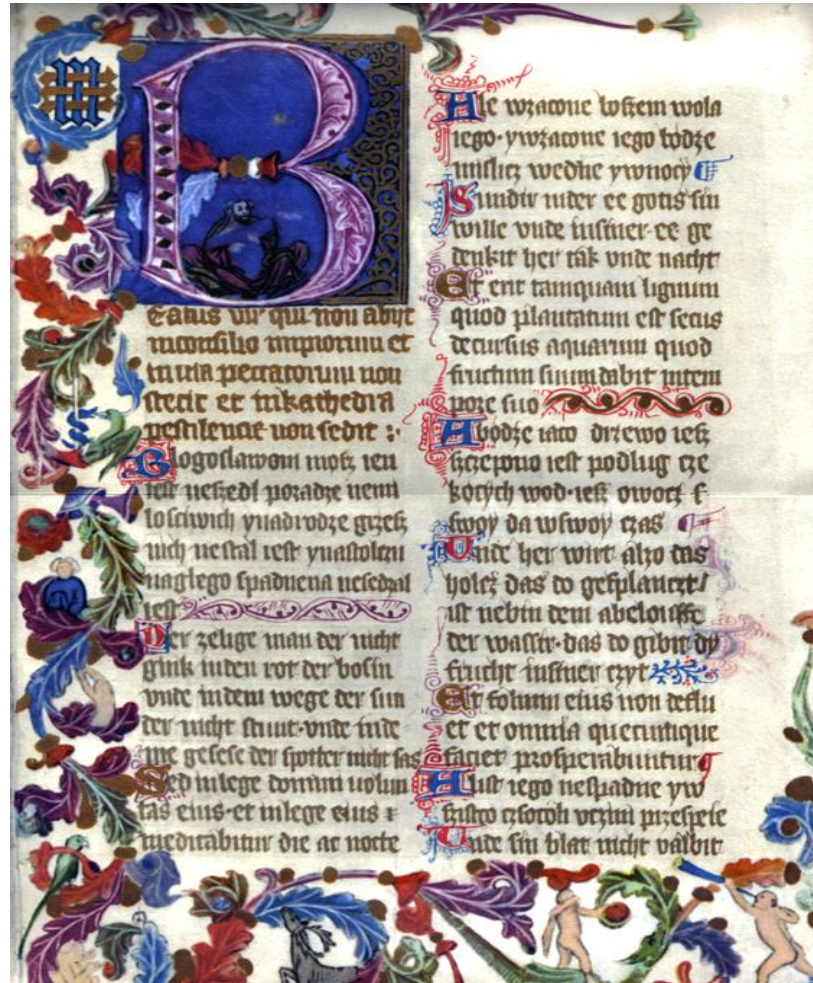 Beatus vir qui non abijt
inconsilio impiorum et
in uia peccatorum non
stetit et inkathedra
pestilencie non sedit :
Blogoslawoni mosz ien
iest neszedl poradze nemi
losciwich ynadrodze grzesz
nich nestal iest ynastolczu
naglego spadnena nesedzal
iest
Der zelige man der nicht
gink inden rot der bosin
vnde indem wege der sun
der nicht stunt·vnde inde
me gesese der spotter nicht sas
Sed inlege domini uolun
tas eius·et inlege eius
meditabitur die ac nocte
Ale wzacone boszem wola
iego·ywzacone iego bodze
mislicz wedne ywnocy
Sundir inder ee gotis sin
wille vnde insiner ee ge
denkit her tak vnde nacht
Et erit tamquam lignum
quod plantatum est secus
decursus aquarum quod
fructum suum dabit intem
pore suo
A bodze iaco drzewo iesz
szczepono iest podlug cze
kocych wod·iesz owocz s
swoy da wswoy czas
Vnde her wirt alzo das
holcz das do gesplanczt/
ist nebin dem abelouffe
der wassir·das do gibit dy
frucht insiner czyt
Et folium eius non deflu
et et omnia quecunque
faciet prosperabuntur
A list iego nespadne yw
szistco czsocoli vczini przespeie
Vnde sin blat nicht valbit